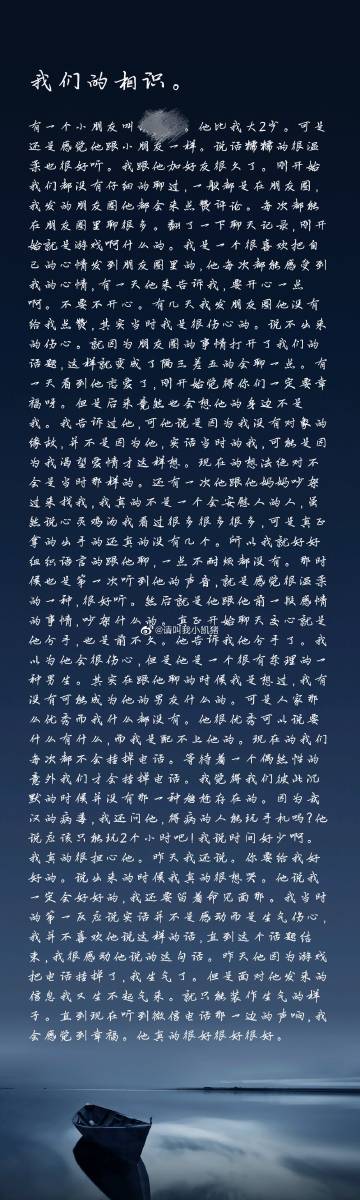 我们的相识。
有一个小朋友叫 。他比我大2岁。可是
还是感觉他跟小朋友一样。说话糯糯的很温
柔也很好听。我跟他加好友很久了。刚开始
我们都没有仔细的聊过，一般都是在朋友圈，
我发的朋友圈他都会来点赞评论。每次都能
在朋友圈里聊很多。翻了一下聊天记录，刚开
始就是游戏啊什么的。我是一个很喜欢把自
己的心情发到朋友圈里的，他每次都能感受到
我的心情，有一天他来告诉我，要开心一点
啊。不要不开心。有几天我发朋友圈他没有
给我点赞，其实当时我是很伤心的。说不出来
的伤心。就因为朋友圈的事情打开了我们的
话题，这样就变成了隔三差五的会聊一点。有
一天看到他恋爱了，刚开始觉得你们一定要幸
福呀。但是后来竟然也会想他的身边不是
我。我告诉过他，可他说是因为我没有对象的
缘故，并不是因为他，实话当时的我，可能是因
为我渴望爱情才这样想。现在的想法绝对不
会是当时那样的。还有一次他跟他妈妈吵架
过来找我，我真的不是一个会安慰人的人，虽
然说心灵鸡汤我看过很多很多很多，可是真正
拿的出手的还真的没有几个。所以我就好好
组织语言的跟他聊，一点不耐烦都没有。那时
候也是第一次听到他的声音，就是感觉很温柔
的一种，很好听。然后就是他跟他前一段感情
的事情，吵架什么的。真正开始聊天交心就是
他分手，也是前不久。他告诉我他分手了。我
以为他会很伤心，但是他是一个很有条理的一
种男生。其实在跟他聊的时候我是想过，我有
没有可能成为他的男友什么的。可是人家那
么优秀而我什么都没有。他很优秀可以说要
什么有什么，而我是配不上他的。现在的我们
每次都不会挂掉电话。等待着一个偶然性的
意外我们才会挂掉电话。我觉得我们彼此沉
默的时候并没有那一种尴尬存在的。因为武
汉的病毒，我还问他，得病的人能玩手机吗？他
说应该只能玩2个小时吧！我说时间好少啊。
我真的很担心他。昨天我还说。你要给我好
好的。说出来的时候我真的很想哭。他说我
一定会好好的，我还要留着命见面那。我当时
的第一反应说实话并不是感动而是生气伤心，
我并不喜欢他说这样的话，直到这个话题结
束，我很感动他说的这句话。昨天他因为游戏
把电话挂掉了，我生气了。但是面对他发来的
信息我又生不起气来。就只能装作生气的样
子。直到现在听到微信电话那一边的声响，我
会感觉到幸福。他真的很好很好很好。
@请叫我小凯猪